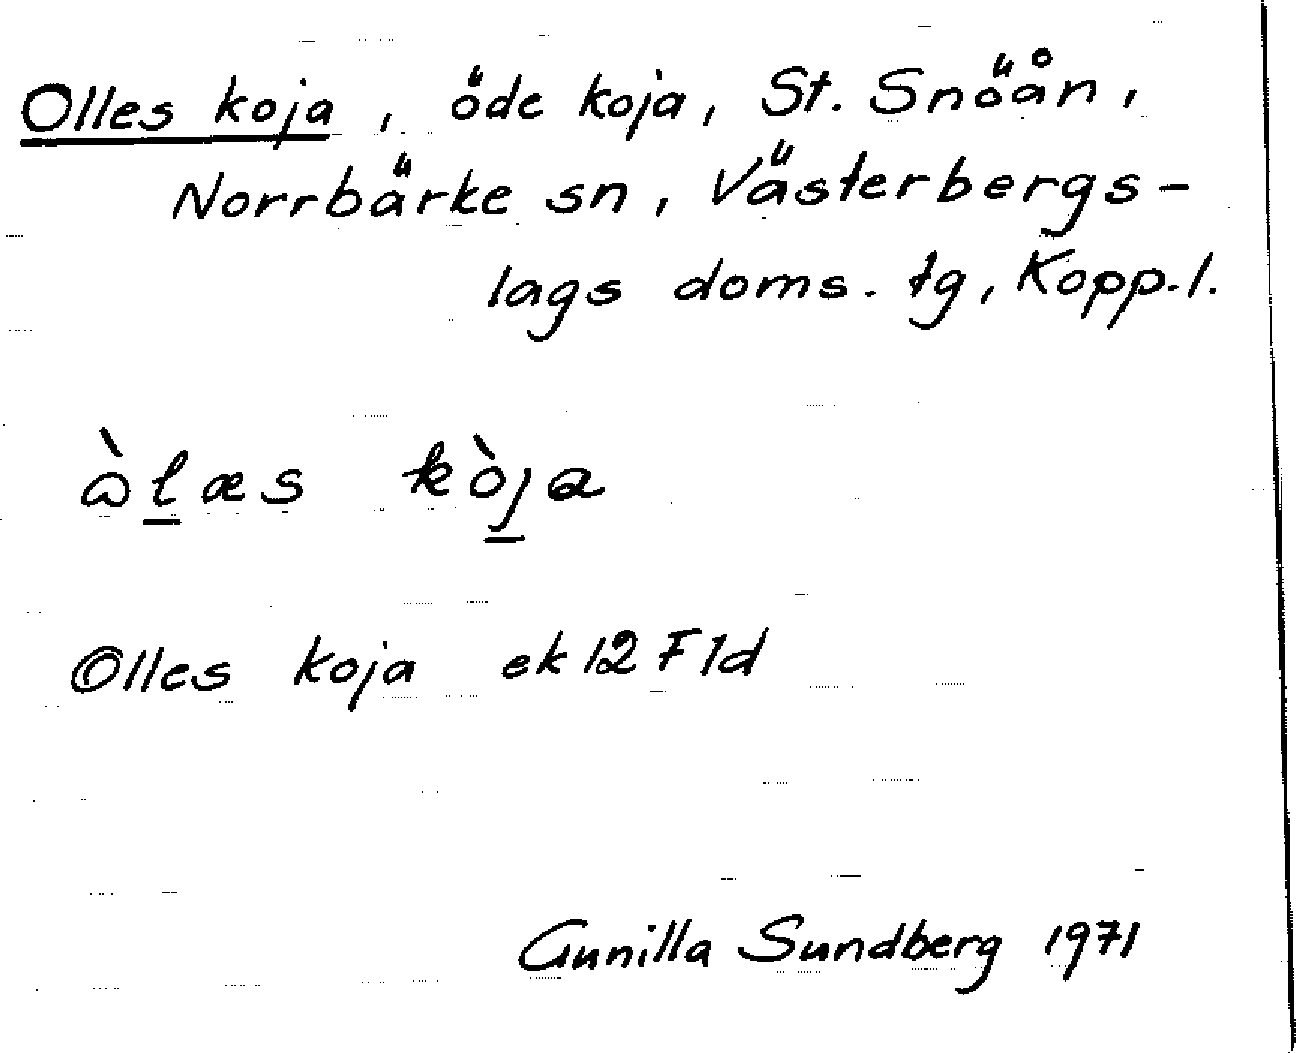 Olles koja, öde koja, St. Snöån,
Norrbärke sn, Västerbergs-
lags doms. tg, Kopp. l.
òlæs kòja
Olles koja ek 12 F 1d
Gunilla Sundberg 1971